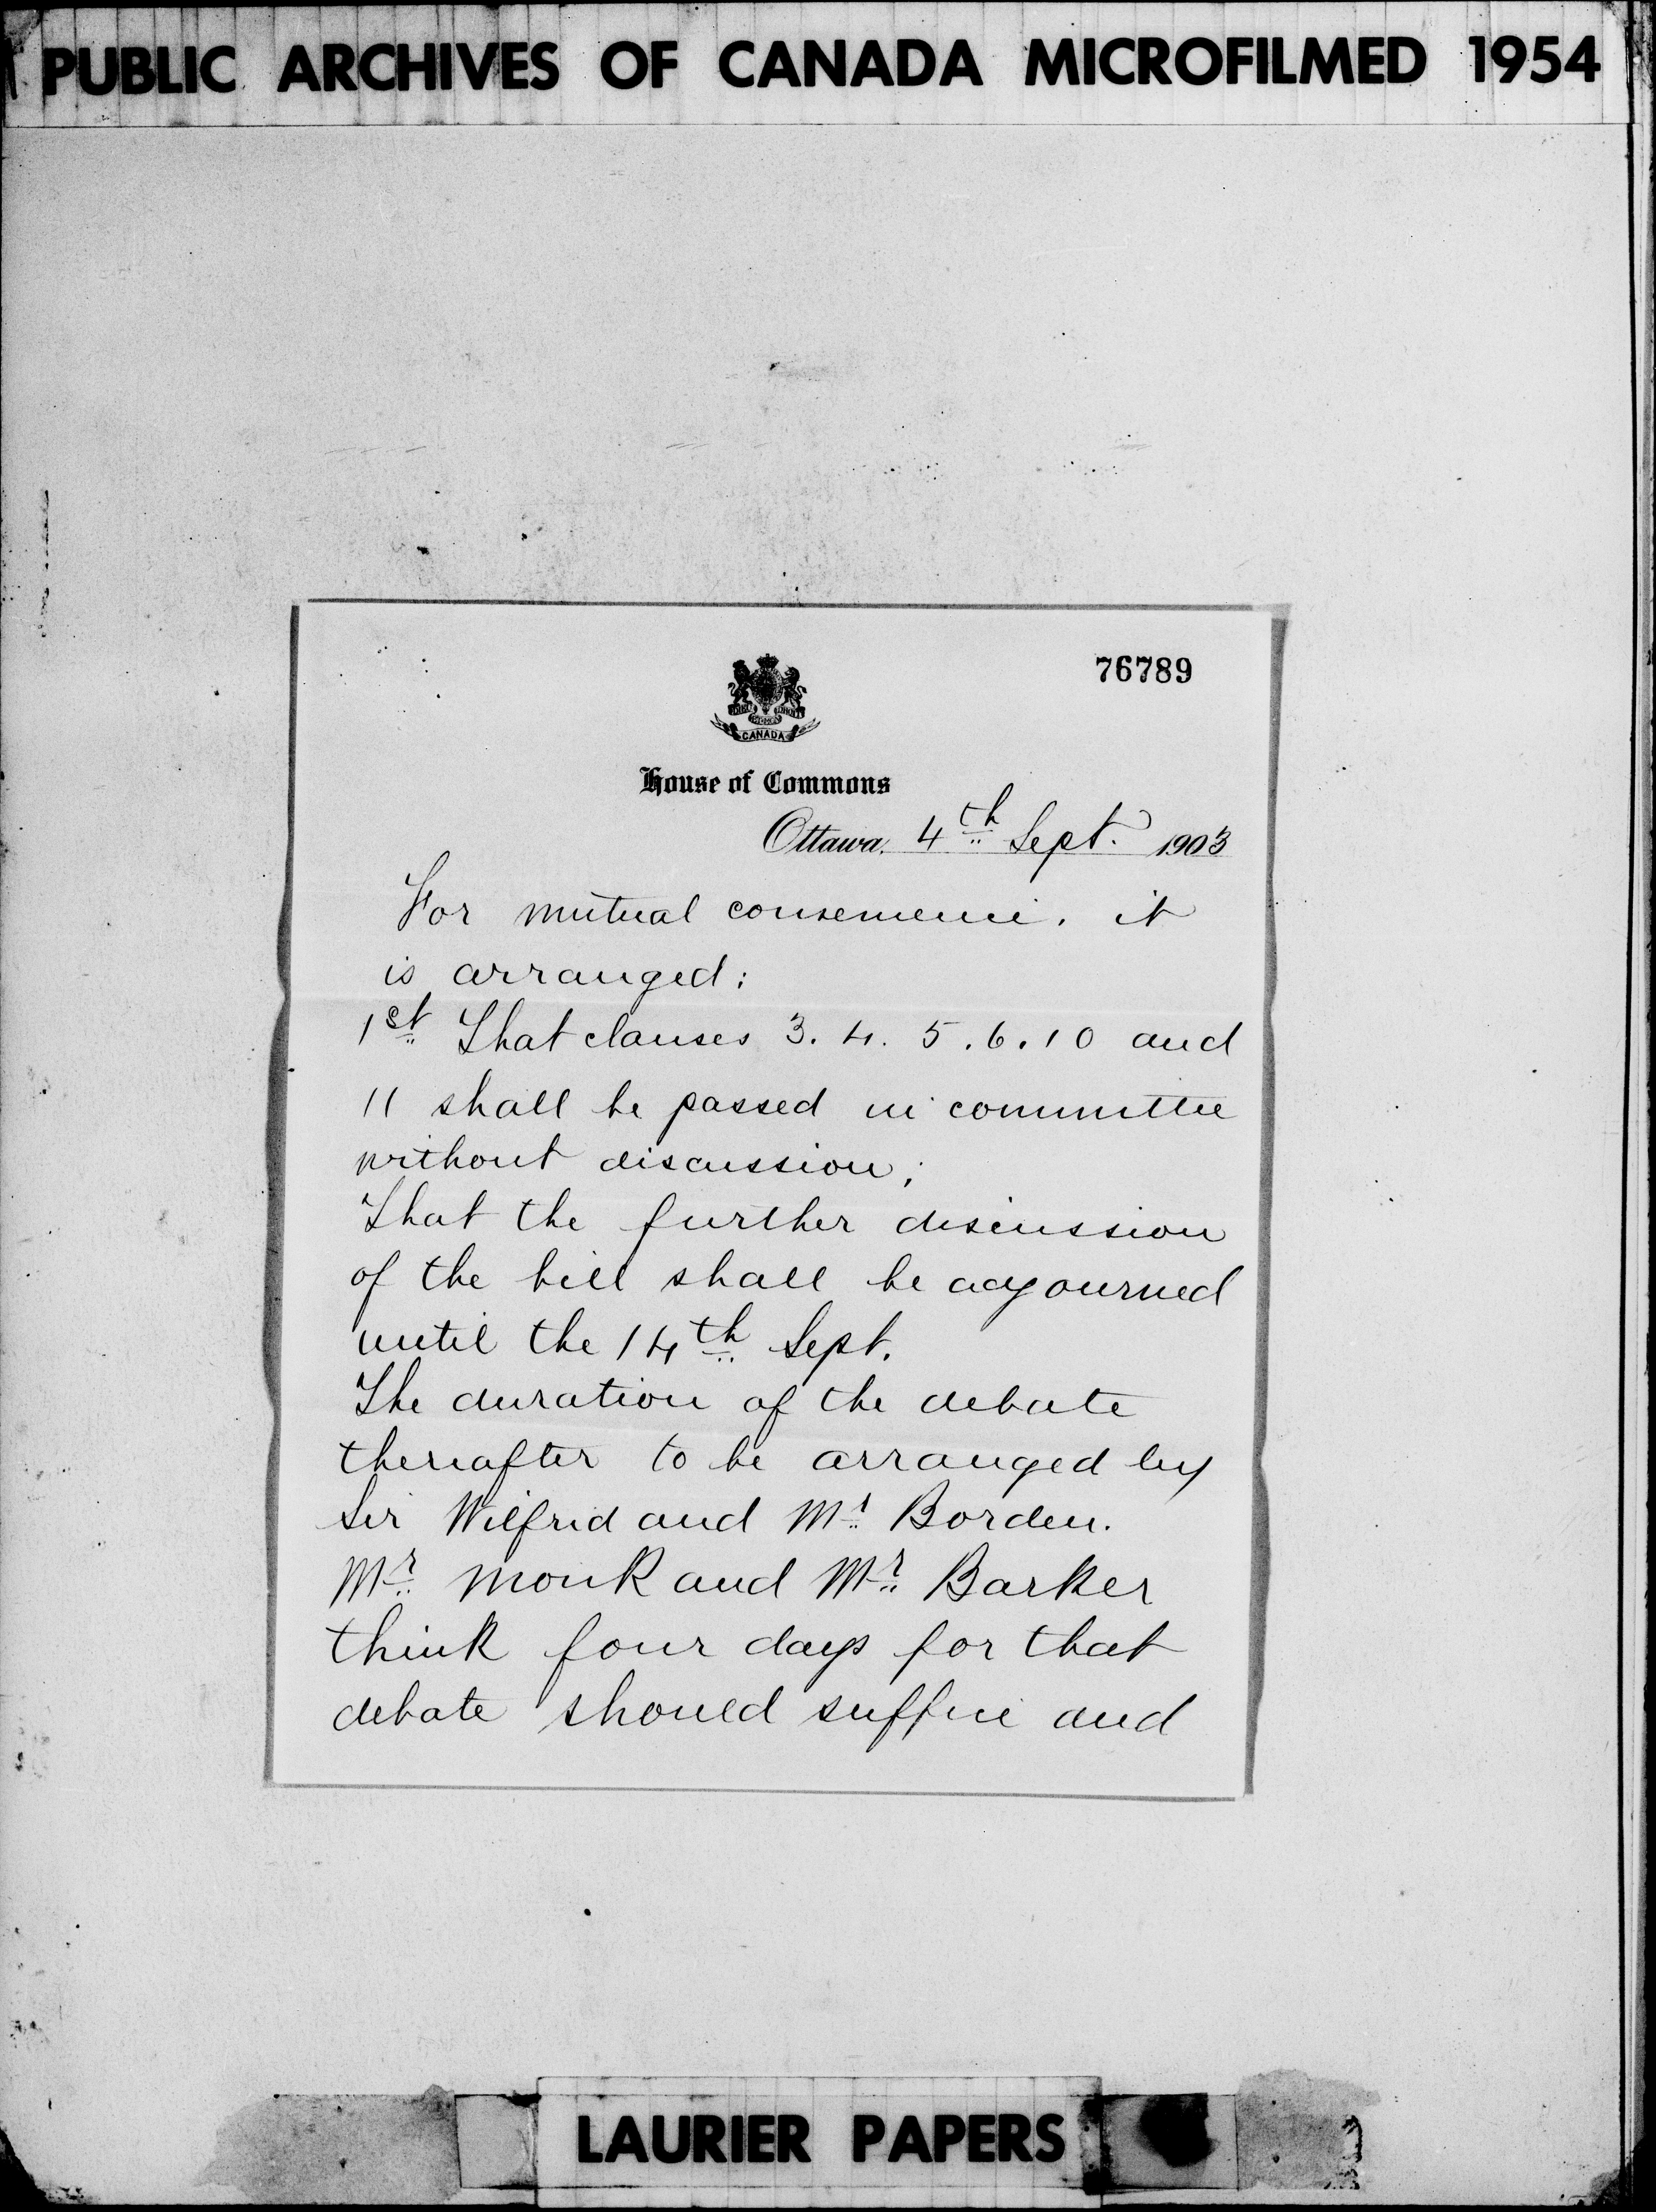 PUBLIC ARCHIVES OF CANADA MICROFILMED 1954
76789
CANADA
House of Commons
Ottawa, 4th Sept. 1903
For mutual convenience, it
is arranged:
1st That clauses 3. 4. 5. 6. 10 and
11 shall be passed in committee
without discussion;
That the further discussion
of the bill shall be adjourned
until the 14th Sept.
The duration of the debate
thereafter to be arranged by
Sir Wilfrid and Mr Borden.
Mr Monk and Mr Barker
think four days for that
debate should suffice and
LAURIER PAPERS